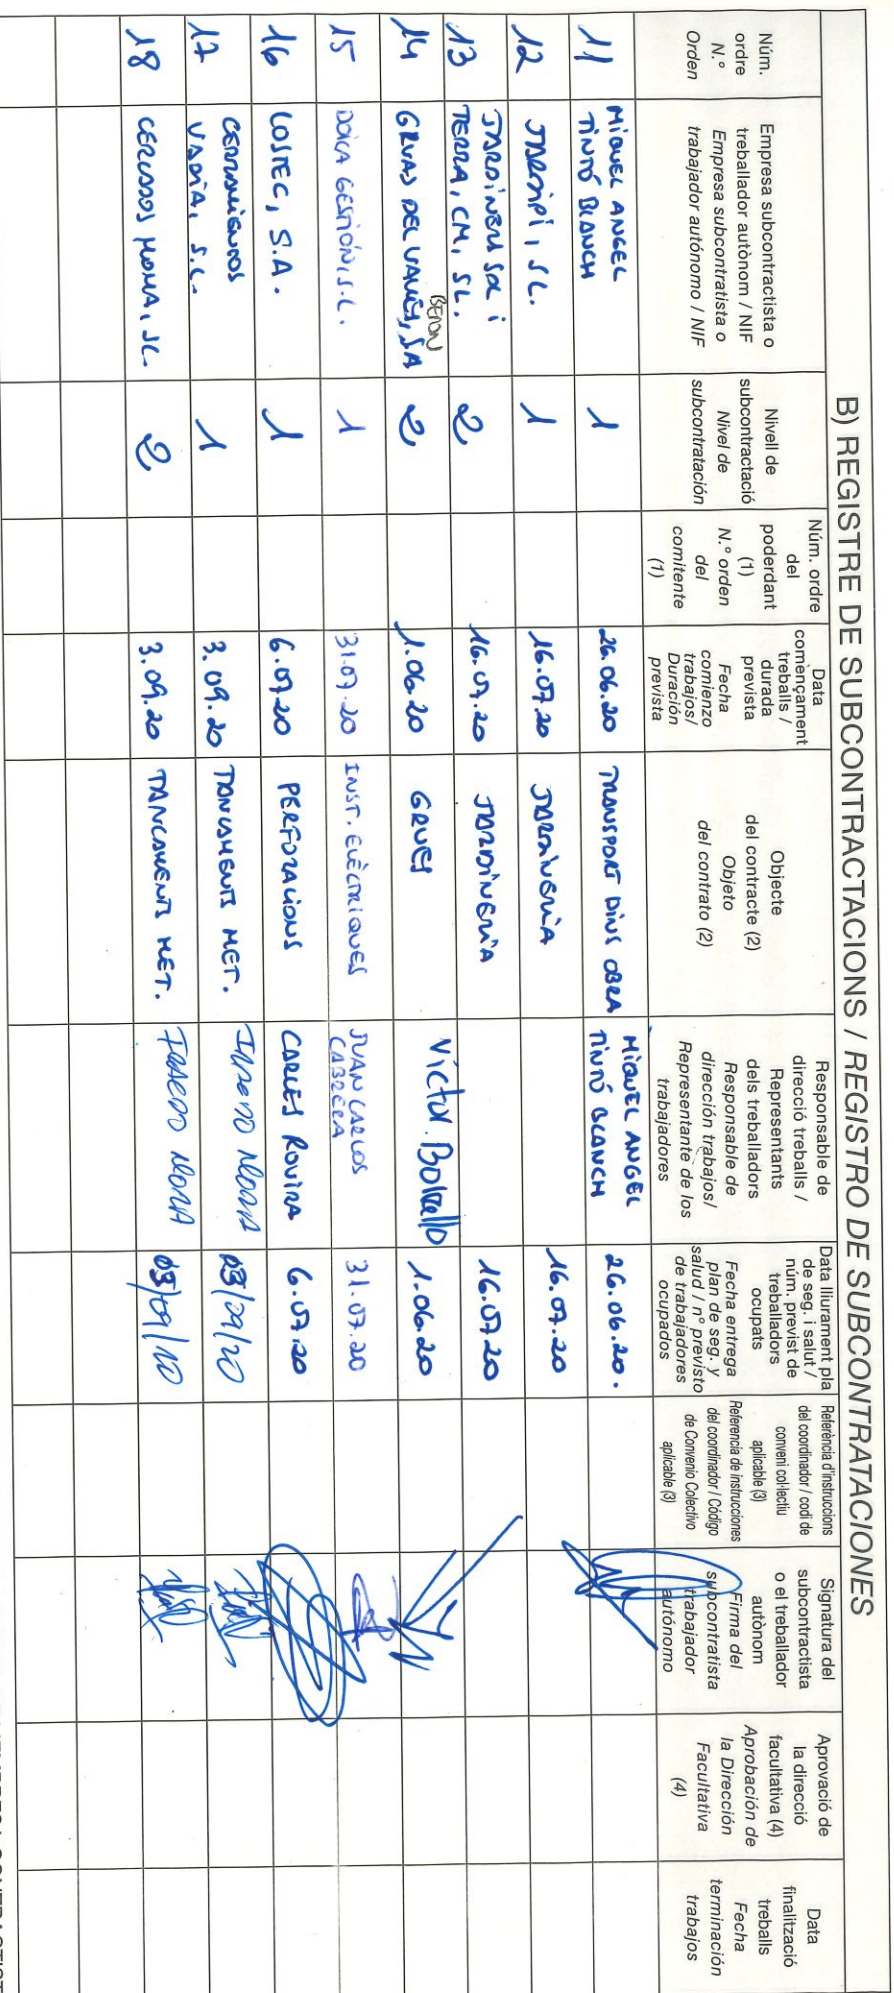 B) REGISTRE DE SUBCONTRACTACIONS / REGISTRO DE SUBCONTRATACIONES
Núm.
ordre
N.º
Orden
Empresa subcontractista o
treballador autònom / NIF
Empresa subcontratista o
trabajador autónomo / NIF
Nivell de
subcontractació
Nivel de
subcontratación
Núm. ordre
del
poderdant
(1)
N.º orden
del
comitente
(1)
Data
començament
treballs /
durada
prevista
Fecha
comienzo
trabajos/
Duración
prevista
Objecte
del contracte (2)
Objeto
del contrato (2)
Responsable de
direcció treballs /
Representants
dels treballadors
Responsable de
dirección trabajos/
Representante de los
trabajadores
Data lliurament pla
de seg. i salut /
núm. previst de
treballadors
ocupats
Fecha entrega
plan de seg. y
salud / nº previsto
de trabajadores
ocupados
Referència d'instruccions
del coordinador / codi de
conveni col·lectiu
aplicable (3)
Referencia de instrucciones
del coordinador / Código
de Convenio Colectivo
aplicable (3)
Signatura del
subcontractista
o el treballador
autònom
Firma del
subcontratista
trabajador
autónomo
Aprovació de
la direcció
facultativa (4)
Aprobación de
la Dirección
Facultativa
(4)
Data
finalització
treballs
Fecha
terminación
trabajos
11
MIQUEL ANGEL
TINTÓ BLANCH
1
26.06.20
TRANSPORT DINS OBRA
MIQUEL ANGEL
TINTÓ BLANCH
26.06.20.
12
JARDIPI, SL.
1
16.07.20
JARDINERIA
16.07.20
13
JARDINERIA SOL i
TERRA, CM, SL.
2
16.07.20
JARDINERIA
16.07.20
14
GRUAS DEL VALLÉS, SA
2
1.06.20
GRUES
Victor.
1.06.20
15
GESTIÓN, S.L.
1
31.07.20
INST. ELÈCTRIQUES
JUAN CARLOS
CABRERA
31.07.20
16
COSTEC, S.A.
1
6.07.20
PERFORACIONS
CARLES ROVIRA
6.07.20
17
CERRAMIENTOS
VADIA, S.L.
1
3.09.20
TANCAMENTS MET.
03/09/20
18
2
3.09.20
TANCAMENTS MET.